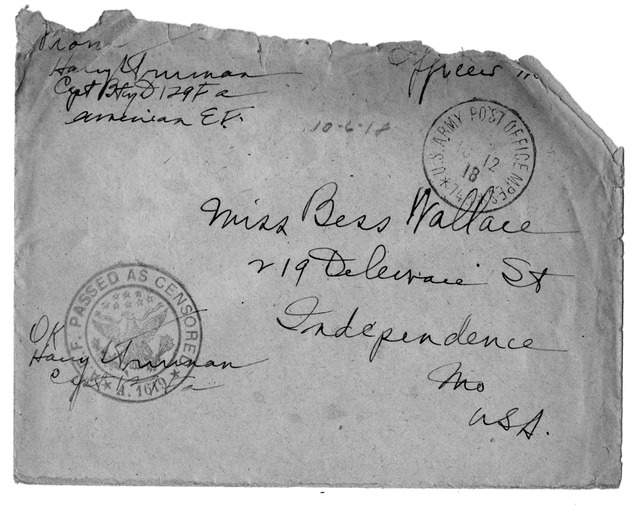 From
Harry S Truman
Capt Bty D 129 F a
American E.F.
Officer's
10-6-18
U.S. ARMY POST OFFICE MPES
12
18
Miss Bess Wallace
219 Deleware St
Independence
Mo
USA.
PASSED AS CENSORED
A. 1619
OK
Harry S Truman
Capt 129 Fa